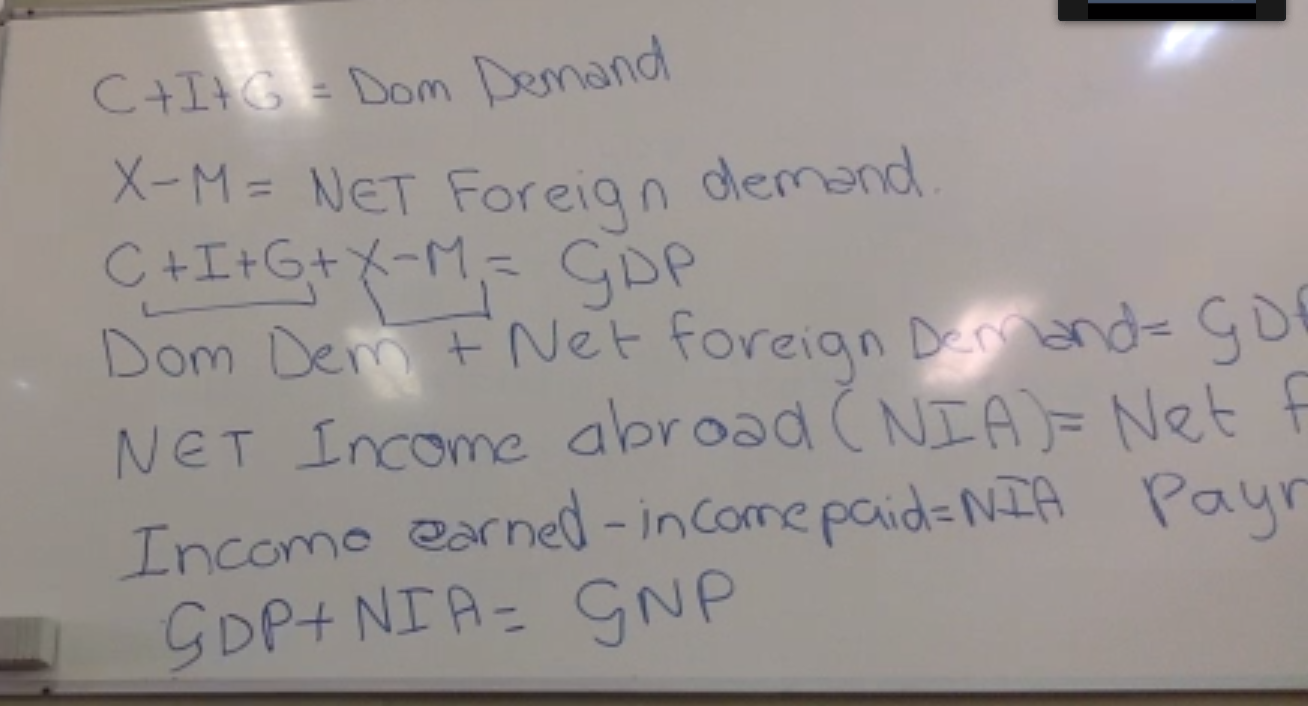 C+I+G = Dom Demand
X-M = NET Foreign demand.
C+I+G+X-M = GDP
Dom Dem + Net foreign Demand = GDP
NET Income abroad (NIA) = Net
Income earned - income paid = NIA
GDP + NIA = GNP